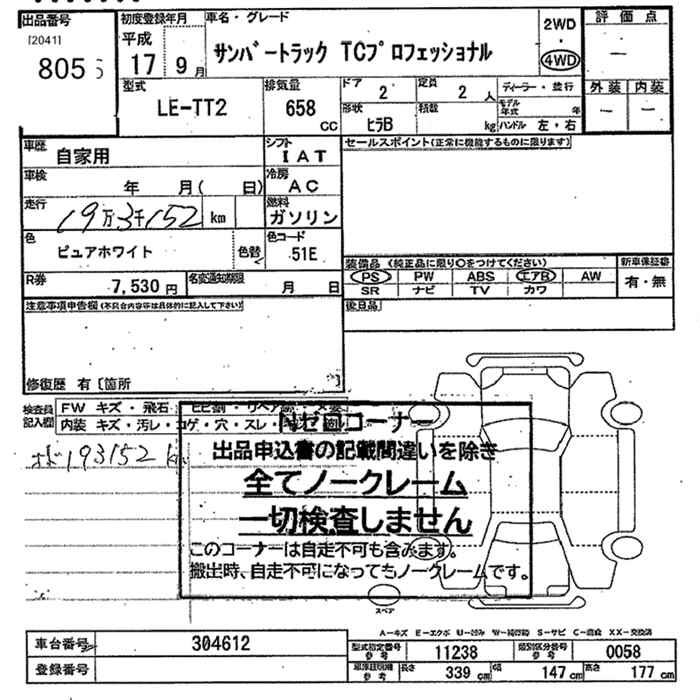 出品番号
[2041]
805
初度登録年月
平成
17 9月
車名・グレード
サンバートラック TCプロフェッショナル
2WD
・
4WD
評価点
―
外装 内装
― ―
型式
LE-TT2
排気量
658 CC
ドア
2
定員
2 人
形状
ヒラB
積載
kg
ディーラー・並行
モデル年式 年
ハンドル 左・右
車歴
自家用
シフト
IAT
セールスポイント(正常に機能するものに限ります)
車検
年 月( 日)
冷房
AC
走行
19万3千152 km
燃料
ガソリン
色
ピュアホワイト
色替
色コード
51E
装備品 (純正品に限り○をつけてください)
新車保証書
PS PW ABS エアB AW
SR ナビ TV カワ
有・無
R券
7,530 円
名変通知期限
月 日
後日品
注意事項申告欄(不具合内容等は具体的に記入して下さい)
修復歴 有〔箇所 〕
検査員記入欄
FW キズ・飛石・ヒビ割・リペア跡・
内装 キズ・汚レ・コゲ・穴・スレ・
193152 km
Nゼロコーナー
出品申込書の記載間違いを除き
全てノークレーム
一切検査しません
このコーナーは自走不可も含みます。
搬出時、自走不可になってもノークレームです。
スペア
A-キズ E-エクボ U-凹み W-補修跡 S-サビ C-腐食 XX-交換済
車台番号
304612
登録番号
型式指定番号 参考
11238
類別区分番号 参考
0058
車庫証明用 参考
長さ
339 cm
幅
147 cm
高さ
177 cm